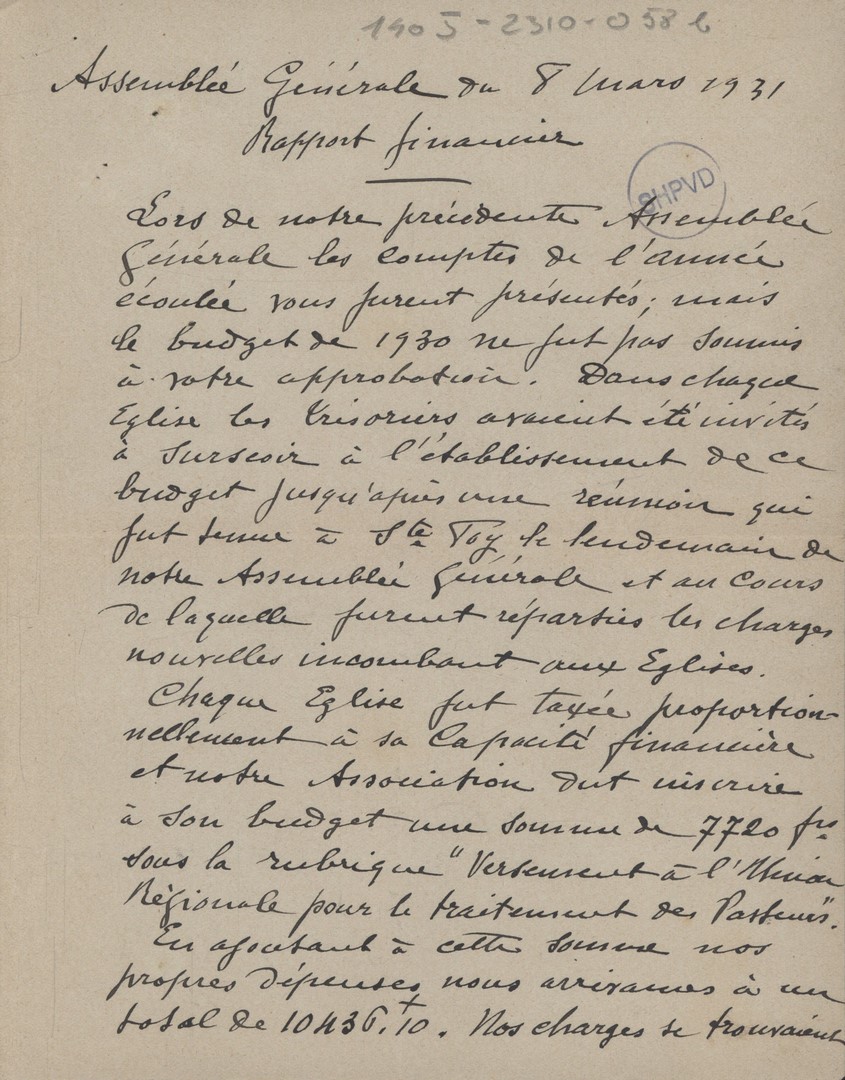 1905-2310-058 b
Assemblée Générale du 8 mars 1931
Rapport financier
SHPVD
Lors de notre précédente Assemblée
Générale les comptes de l'année
écoulée vous furent présentés; mais
le budget de 1930 ne fut pas soumis
à votre approbation. Dans chaque
Eglise les trésoriers avaient été invités
à surseoir à l'établissement de ce
budget jusqu'après une réunion qui
fut tenue à Ste Foy le lendemain de
notre Assemblée Générale et au cours
de laquelle furent réparties les charges
nouvelles incombant aux Eglises.
Chaque Eglise fut taxée proportion-
nellement à sa capacité financière
et notre Association dut inscrire
à son budget une somme de 7720 frs
sous la rubrique "Versement à l'Union
Régionale pour le traitement des Pasteurs".
En ajoutant à cette somme nos
propres dépenses nous arrivames à un
total de 10436f.10. Nos charges se trouvaient